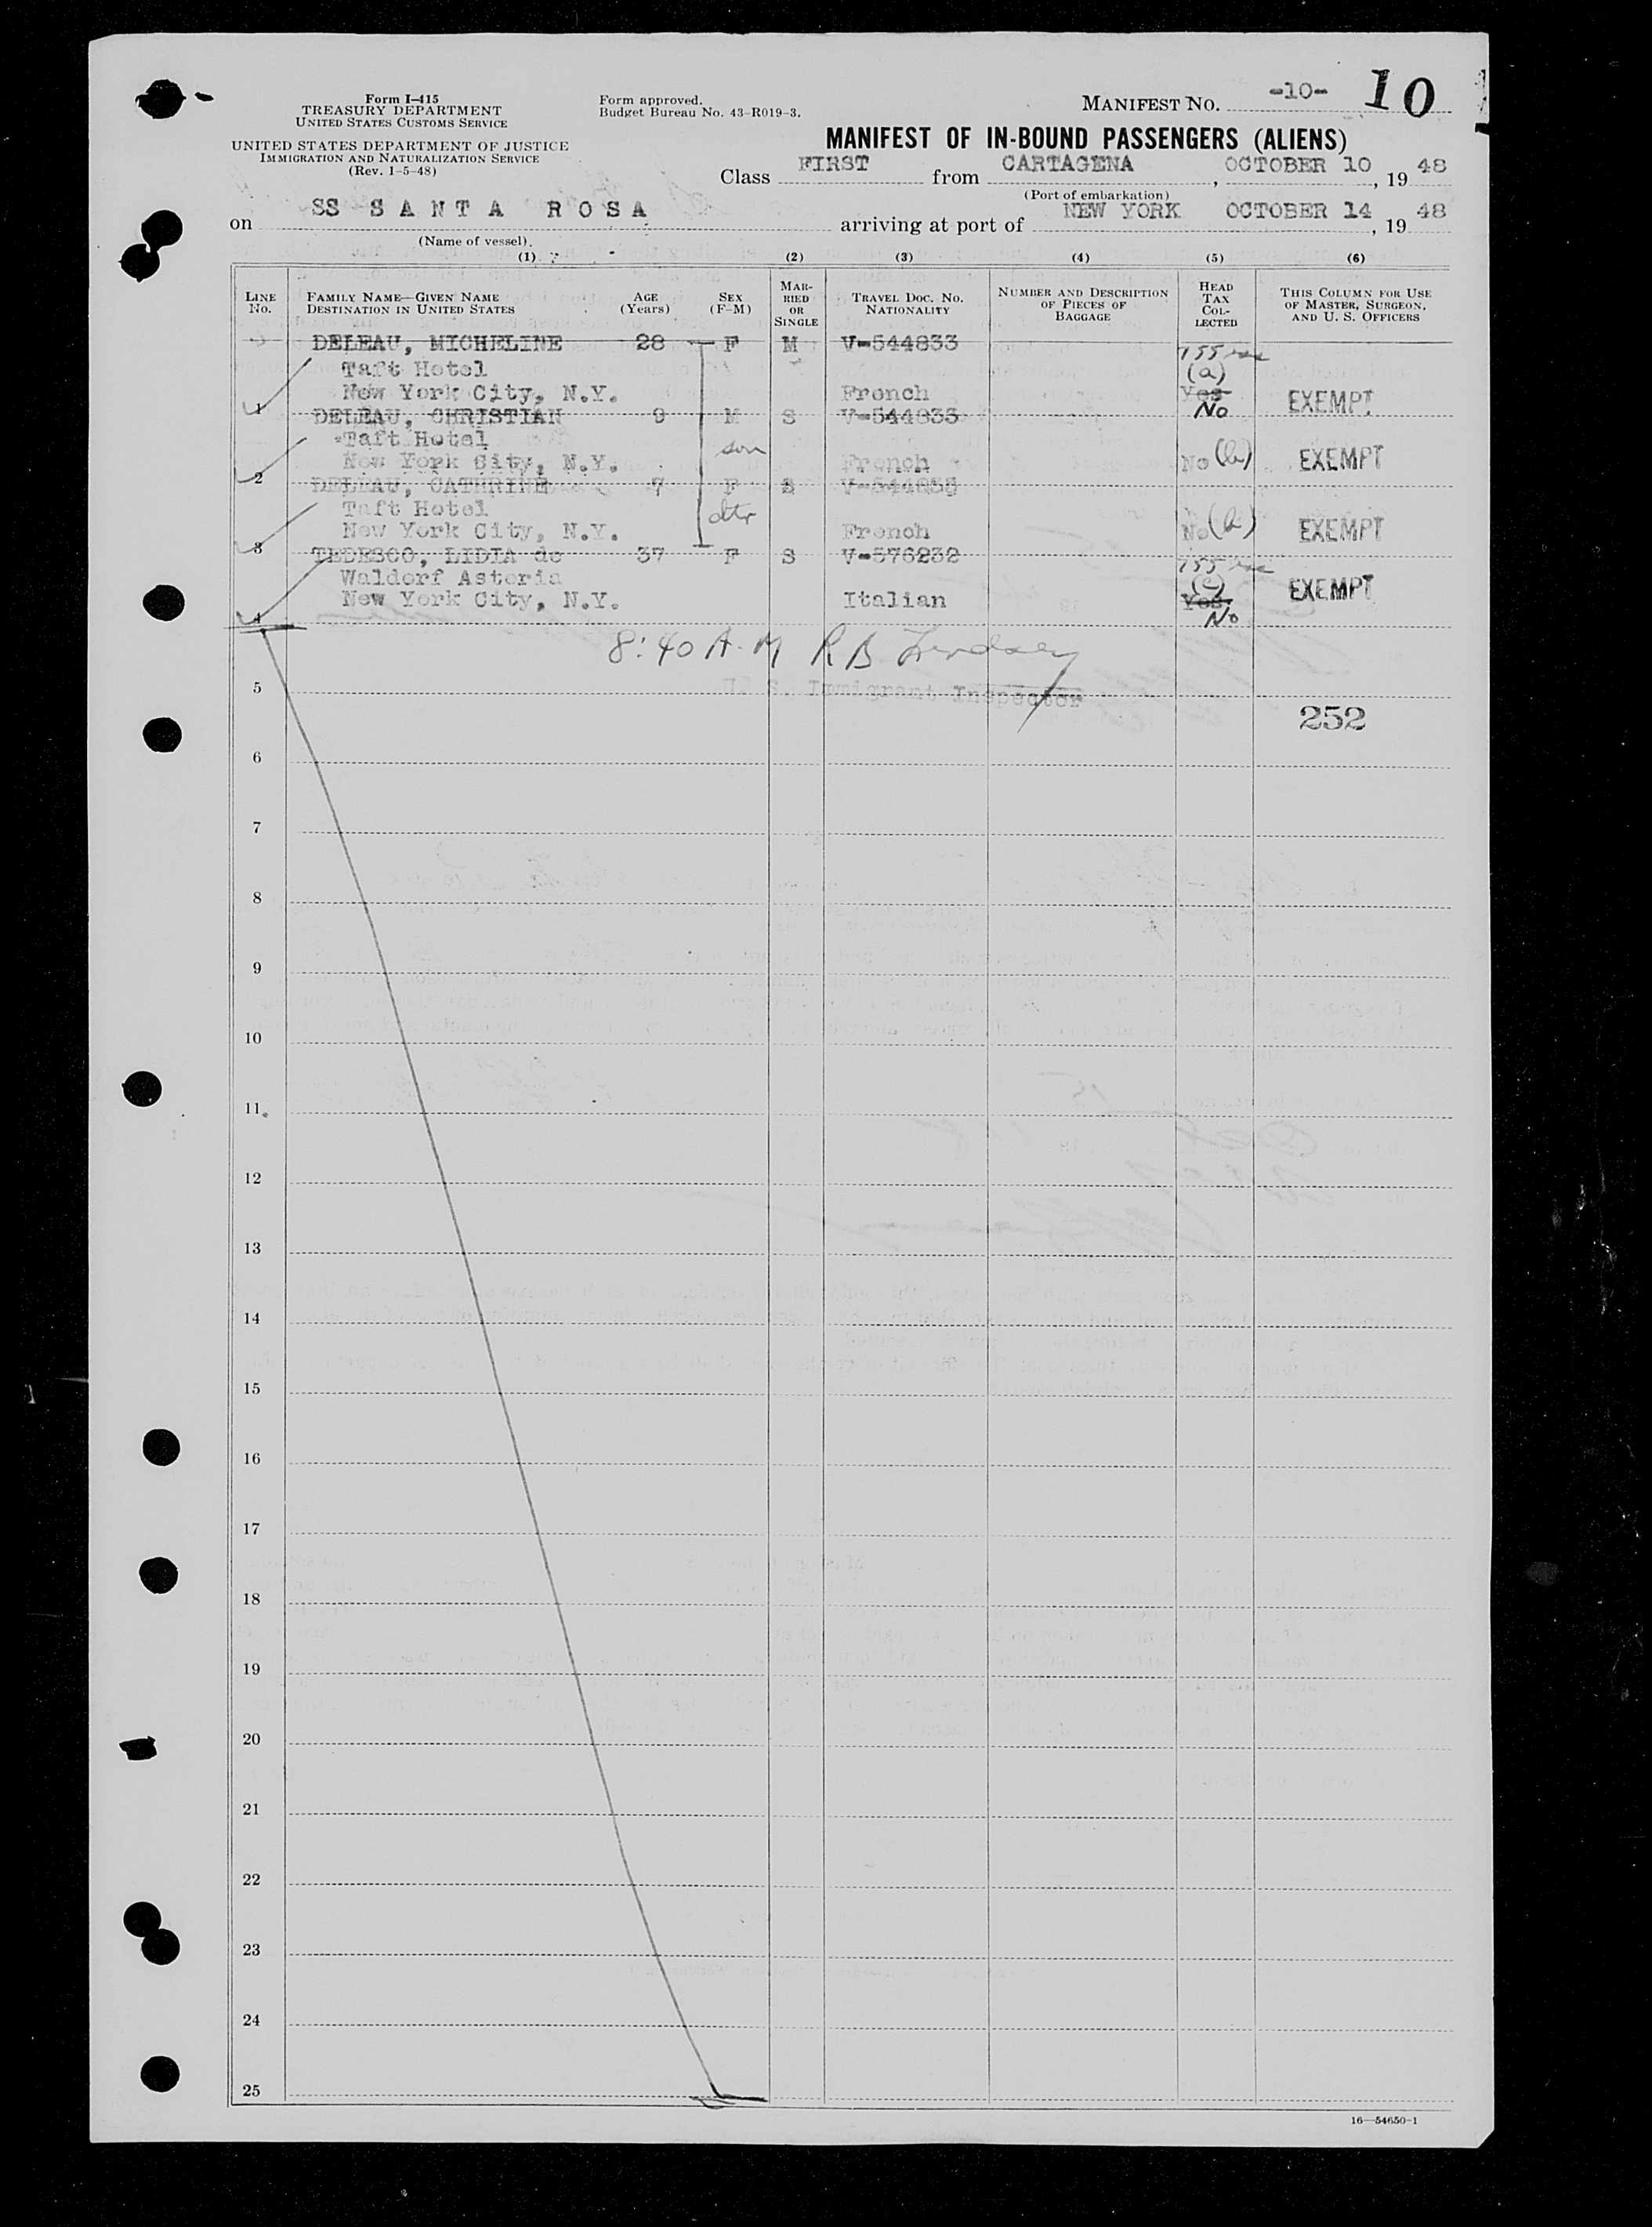 Form I-415
TREASURY DEPARTMENT
UNITED STATES CUSTOMS SERVICE
UNITED STATES DEPARTMENT OF JUSTICE
IMMIGRATION AND NATURALIZATION SERVICE
(Rev. 1-5-48)
Form approved.
Budget Bureau No. 43-R019-3.
MANIFEST NO. -10- 10
MANIFEST OF IN-BOUND PASSENGERS (ALIENS)
Class FIRST from CARTAGENA, OCTOBER 10, 1948
(Port of embarkation)
on SS SANTA ROSA arriving at port of NEW YORK OCTOBER 14, 1948
(Name of vessel)
(1) (2) (3) (4) (5) (6)
LINE No. FAMILY NAME—GIVEN NAME DESTINATION IN UNITED STATES AGE (Years) SEX (F-M) MARRIED OR SINGLE TRAVEL DOC. NO. NATIONALITY NUMBER AND DESCRIPTION OF PIECES OF BAGGAGE HEAD TAX COLLECTED THIS COLUMN FOR USE OF MASTER, SURGEON, AND U. S. OFFICERS
DELEAU, MICHELINE 28 F M V-544833
Taft Hotel (a)
New York City, N.Y. French Yes EXEMPT
1 No
DELEAU, CHRISTIAN 9 M S V-544833
Taft Hotel son
New York City, N.Y. French No (b) EXEMPT
2
DELEAU, CATHRINE 7 F S V-544833
Taft Hotel dtr
New York City, N.Y. French No (b) EXEMPT
3
TEDESCO, LIDIA de 37 F S V-576232
Waldorf Astoria (c) EXEMPT
New York City, N.Y. Italian Yes
4 No
8:40 A.M RB Lindsey
U. S. Immigrant Inspector
5
252
6
7
8
9
10
11
12
13
14
15
16
17
18
19
20
21
22
23
24
25
16—54650-1